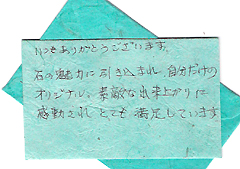 いつもありがとうございます。
石の魅力に引き込まれ、自分だけの
オリジナル、素敵な出来上がりに
感動され とても 満足しています